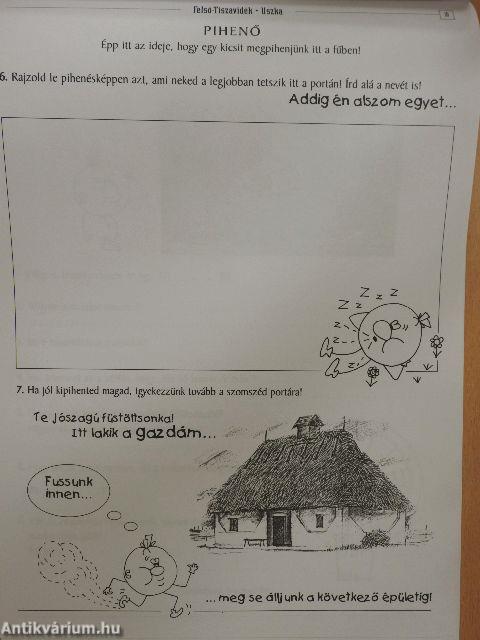 Felső-Tiszavidék - Uszka
PIHENŐ
Épp itt az ideje, hogy egy kicsit megpihenjünk itt a fűben!
6. Rajzold le pihenésképpen azt, ami neked a legjobban tetszik itt a portán! Írd alá a nevét is!
Addig én alszom egyet...
Z Z Z Z
Z Z
Z
Z
Z
7. Ha jól kipihented magad, igyekezzünk tovább a szomszéd portára!
Te jószagú füstöltsonka!
Itt lakik a gazdám...
Fussunk
innen...
... meg se álljunk a következő épületig!
Antikvárium.hu